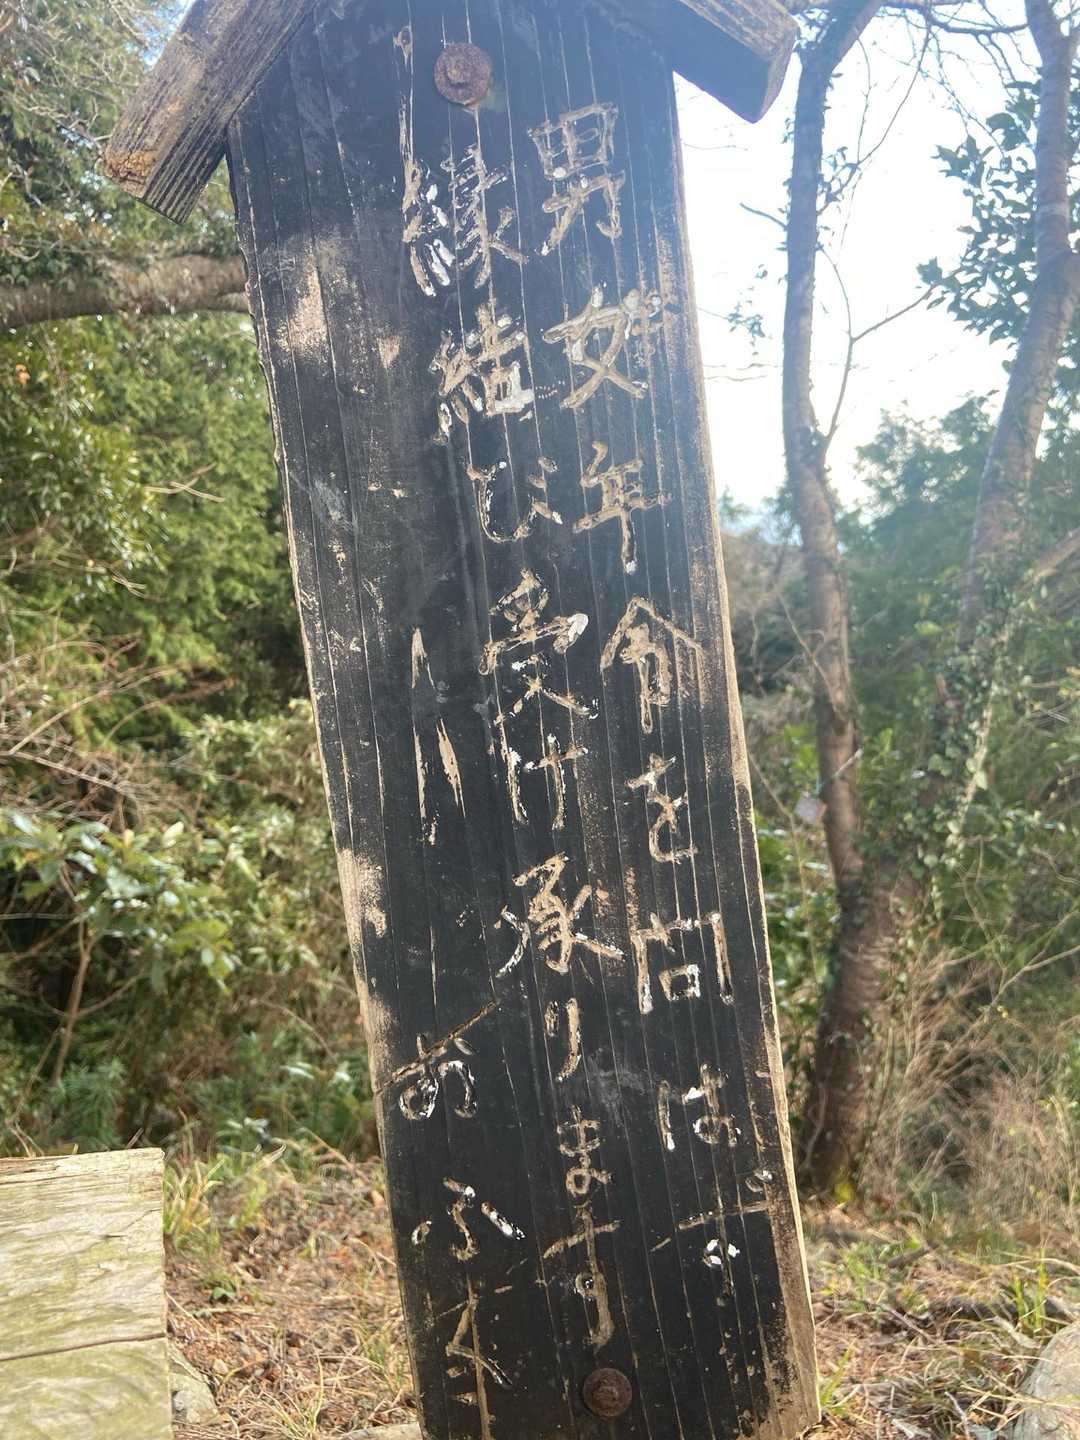 男女年令を問はず
縁結び受け承ります